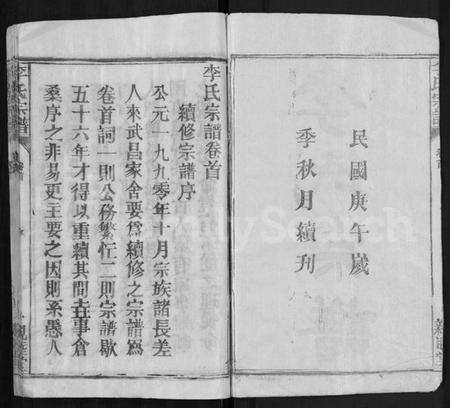 民國庚午歲
季秋月續刋
李氏宗譜卷首
續修宗譜序
公元一九九零年十月宗族諸長差
人來武昌家舍要爲續修之宗譜爲
卷首詞一則公務繁忙二則宗譜歇
五十六年才得以重續其間
事倉
桑序之非易更主要之因則系愚人
李氏宗譜